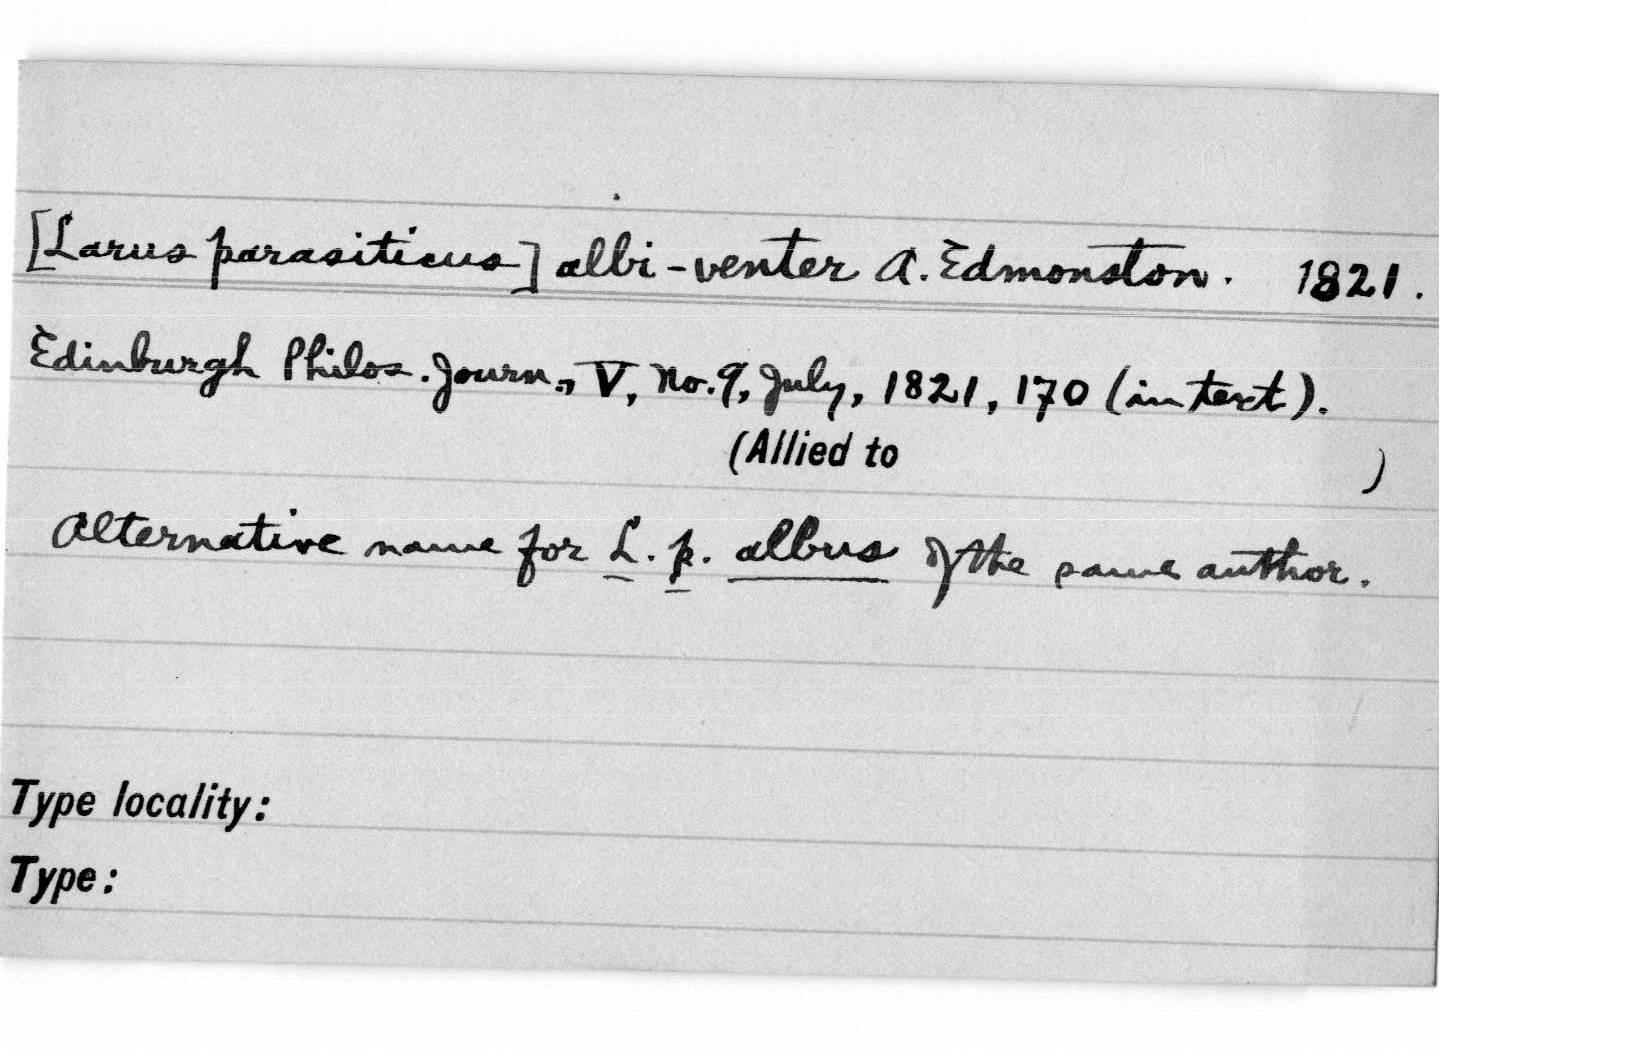 [Larus parasiticus] albi-venter A. Edmonston. 1821.
Edinburgh Philos. Journ., V, No. 9, July, 1821, 170 (in text).
(Allied to )
Alternative name for L. p. albus of the same author.
Type locality:
Type: